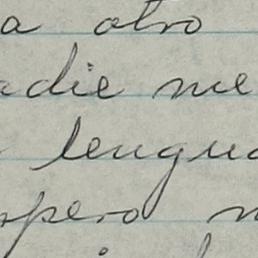 a otro
adie me
lengua
spero n